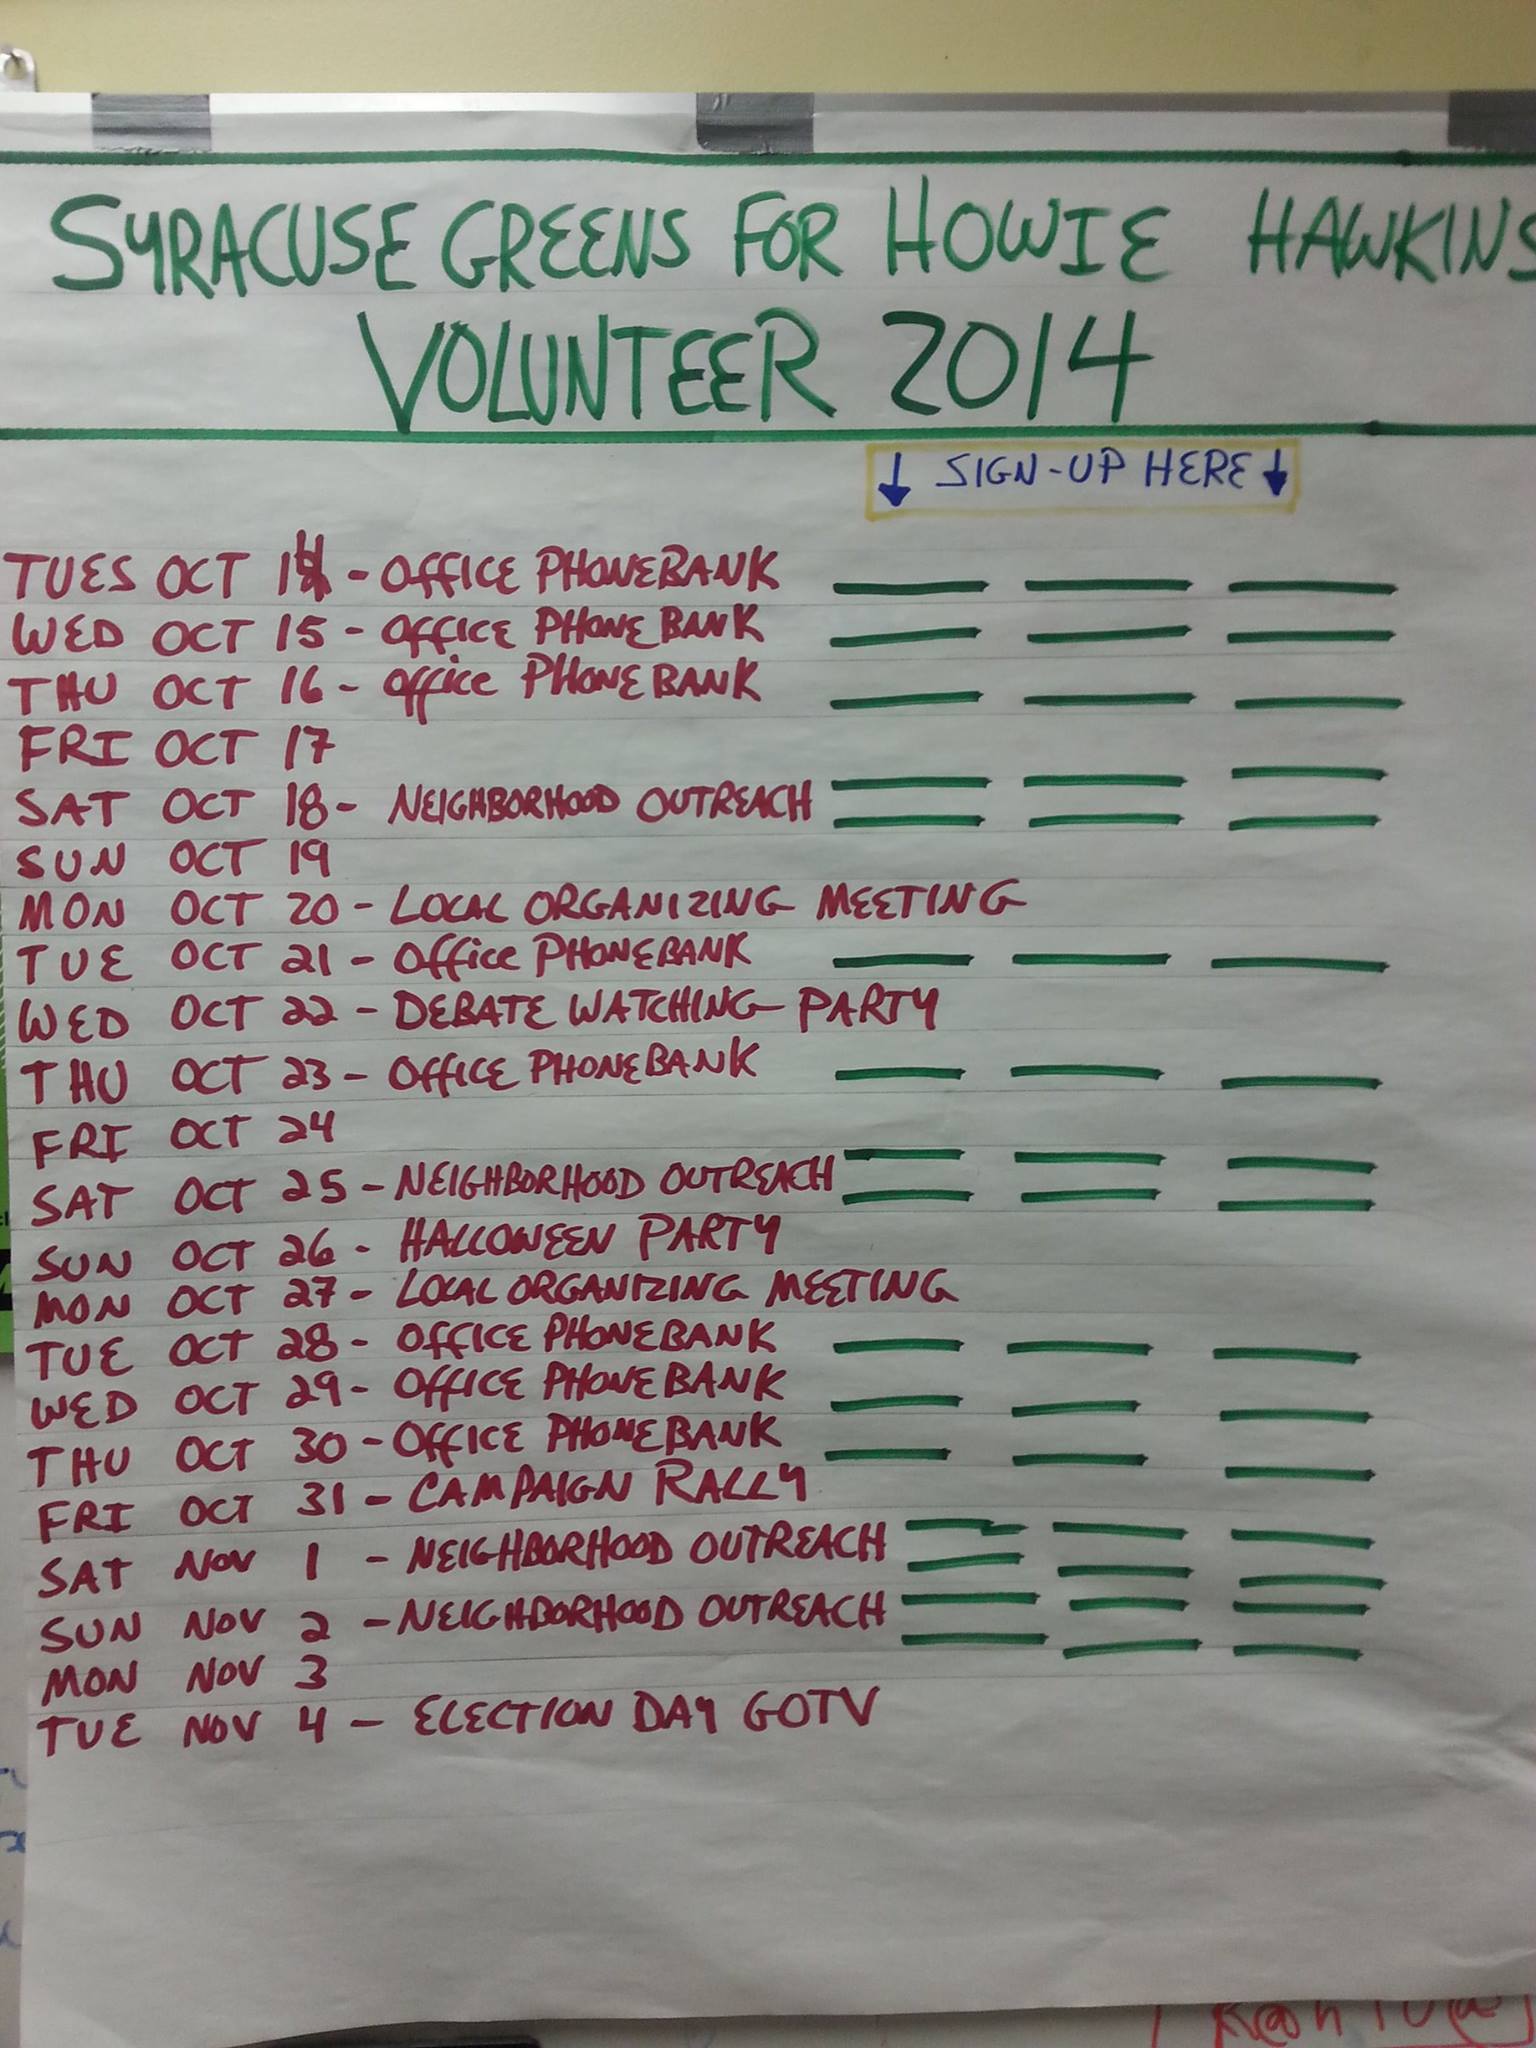 SYRACUSE GREENS FOR HOWIE HAWKINS
VOLUNTEER 2014
↓ SIGN-UP HERE ↓
TUES OCT 14 - OFFICE PHONEBANK
WED OCT 15 - OFFICE PHONE BANK
THU OCT 16 - OFFICE PHONE BANK
FRI OCT 17
SAT OCT 18 - NEIGHBORHOOD OUTREACH
SUN OCT 19
MON OCT 20 - LOCAL ORGANIZING MEETING
TUE OCT 21 - OFFICE PHONEBANK
WED OCT 22 - DEBATE WATCHING PARTY
THU OCT 23 - OFFICE PHONEBANK
FRI OCT 24
SAT OCT 25 - NEIGHBORHOOD OUTREACH
SUN OCT 26 - HALLOWEEN PARTY
MON OCT 27 - LOCAL ORGANIZING MEETING
TUE OCT 28 - OFFICE PHONEBANK
WED OCT 29 - OFFICE PHONEBANK
THU OCT 30 - OFFICE PHONEBANK
FRI OCT 31 - CAMPAIGN RALLY
SAT NOV 1 - NEIGHBORHOOD OUTREACH
SUN NOV 2 - NEIGHBORHOOD OUTREACH
MON NOV 3
TUE NOV 4 - ELECTION DAY GOTV